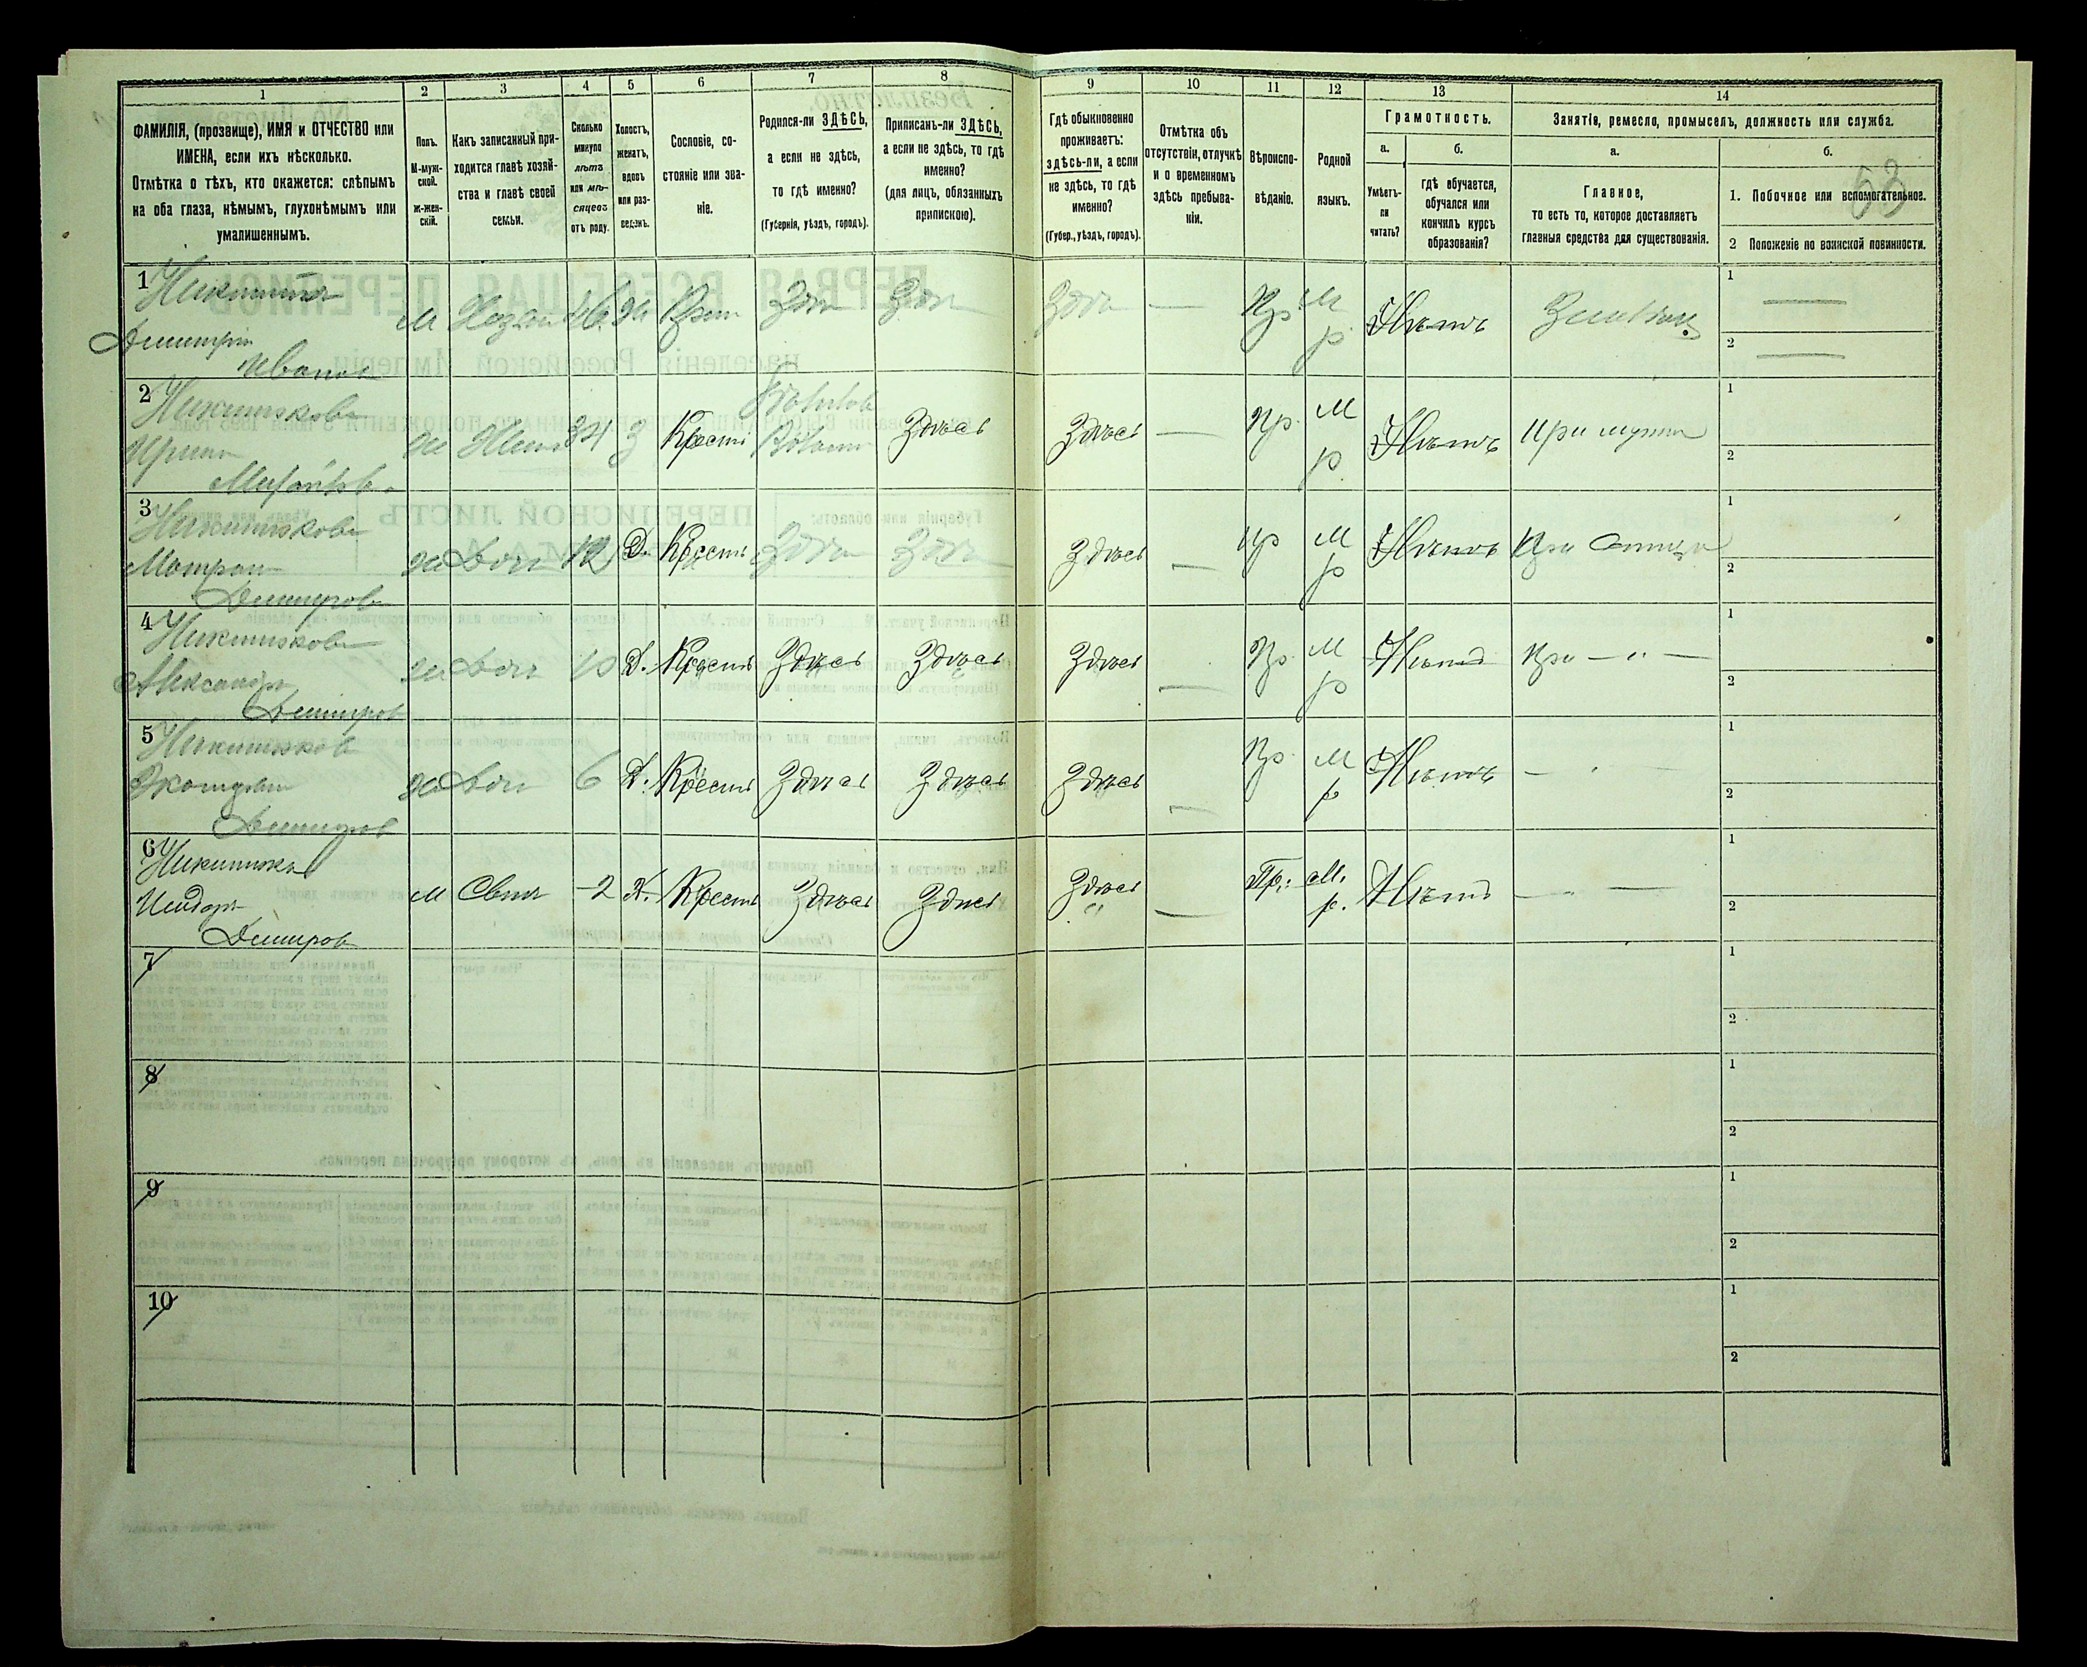 1
2
3
4
5
6
7
8
9
10
11
12
13
14
ФАМИЛІЯ, (прозвище), ИМЯ и ОТЧЕСТВО или
ИМЕНА, если ихъ нѣсколько.
Отмѣтка о тѣхъ, кто окажется: слѣпымъ
на оба глаза, нѣмымъ, глухонѣмымъ или
умалишеннымъ.
Полъ.
М-муж-
ской.
ж-жен-
скій.
Какъ записанный при-
ходится главѣ хозяй-
ства и главѣ своей
семьи.
Сколько
минуло
лѣтъ
или мѣ-
сяцевъ
отъ роду.
Холостъ,
женатъ,
вдовъ
или раз-
веденъ.
Сословіе, со-
стояніе или зва-
ніе.
Родился-ли ЗДѢСЬ,
а если не здѣсь,
то гдѣ именно?
(Губернія, уѣздъ, городъ).
Приписанъ-ли ЗДѢСЬ,
а если не здѣсь, то гдѣ
именно?
(для лицъ, обязанныхъ
припискою).
Гдѣ обыкновенно
проживаетъ:
здѣсь-ли, а если
не здѣсь, то гдѣ
именно?
(Губер., уѣздъ, городъ).
Отмѣтка объ
отсутствіи, отлучкѣ
и о временномъ
здѣсь пребыва-
ніи.
Вѣроиспо-
вѣданіе.
Родной
языкъ.
Грамотность.
а.
б.
Умѣетъ-
ли
читать?
гдѣ обучается,
обучался или
кончилъ курсъ
образованія?
Занятіе, ремесло, промыселъ, должность или служба.
а.
б.
Главное,
то есть то, которое доставляетъ
главныя средства для существованія.
1. Побочное или вспомогательное.
2 Положеніе по воинской повинности.
53
1
Дмитрій
Иванов
М Хозяин 46 Крест
Пр. М
р
Нѣтъ
1
2
2
Никишкова
Ирина
ж Жена 34 З Крест Здѣсь Здѣсь — Пр. М
р
Нѣтъ при мужѣ
1
2
3
Никишкова
Матрона
Дмитров
ж Доч 12 Д. Крестъ Здѣсь — пр М
р
Нѣтъ При отцѣ
1
2
4
Никишкова
Александра
Дмитров
ж Доч 10 Д. Крестъ Здѣсь Здѣсь Здѣсь — Пр. М
р
Нѣтъ При — " —
1
2
5
Никишков
Дмитров
ж Доч 6 Д. Крестъ Здѣсь Здѣсь Здѣсь — Пр. М
р
Нѣтъ — " —
1
2
6
Дмитров
м Сынъ 2 Х. Крестъ Здѣсь Здѣсь Здѣсь — Пр.: М.
р.
Нѣтъ — " —
1
2
7
1
2
8
1
2
9
1
2
10
1
2